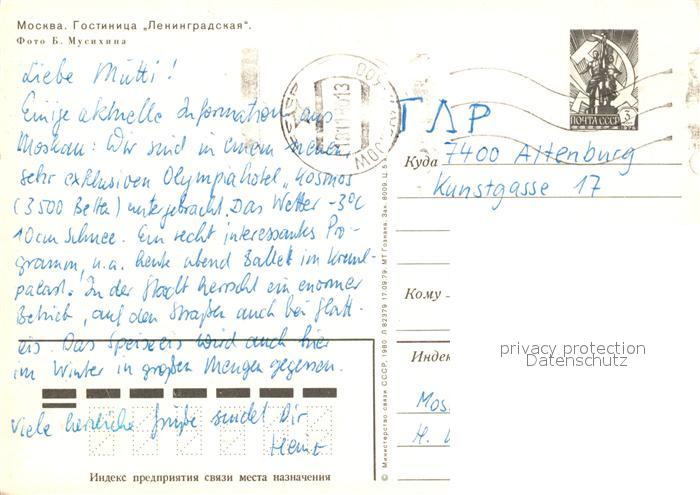 Москва. Гостиница „Ленинградская“.
Фото Б. Мусихина
Liebe Mutti!
Einige aktuelle Information aus
Moskau: Wir sind in einem neuen,
sehr exklusiven Olympiahotel „Kosmos
(3500 Betten) untergebracht. Das Wetter -3°C
10cm Schnee. Ein recht interessantes Pro-
gramm, u.a. heute abend Ballett im Kreml-
palast. In der Stadt herrscht ein enormer
Betrieb, auf den Straßen auch bei Glatt-
eis. Das Speiseeis wird auch hier
im Winter in großen Mengen gegessen.
Viele herzliche Grüße sendet Dir
Индекс предприятия связи места назначения
© Министерство связи СССР, 1980. Л 82379 17.09.79. МТ Гознака. Зак. 8009. Ц. 5 к.
ПОЧТА СССР
3
ГДР
Куда 7400 Altenburg
Kunstgasse 17
Кому
Индек
privacy protection
Datenschutz
Mos
H.